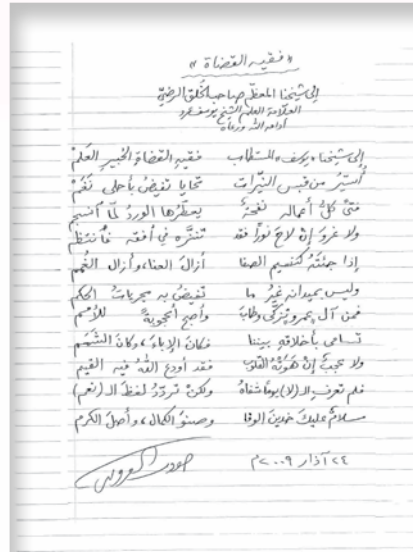 « فقيه القضاة »
إلى شيخنا المعظّم صاحب الخُلق الرضيّ
العلّامة العلم الشيخ يوسف عمرو
أدامه الله ورعاه
إلى شيخنا «يوسف» المستطاب فقيهِ القضاةِ الخبيرِ العَلَمْ
أُسيّرُ من قبسِ النيّرات تحايا تفيضُ بأحلى نَغَمْ
فتىً كلُّ أعماله نفحةٌ يعطّرها الوردُ لمّا ابتسمْ
ولا غروَ إنْ لاحَ نوراً فقد تنزّه في أفقه فانتظمْ
إذا جئتَهُ كنسيم الصفا أزالَ العنا، وأزال الغُمَمْ
وليس بميدانه غيرُ ما تفيضُ به مجرياتُ الحِكَمْ
فمن آل عمرو تزكّى وطابَ وأصبح أعجوبةً للأممْ
تسامى بأخلاقه بيننا فكانَ الإباءَ، وكانَ الشَمَمْ
ولا عجبٌ إنْ هَوَتْهُ القلوبُ فقد أودعَ اللهُ فيه القيمْ
فلم تعرفِ الـ (لا) يوماً شفاهُ ولكنْ تردّدُ لفظَ الـ (نعم)
سلامٌ عليكَ خدينَ الوفا وصنوَ الكمالِ، وأصلَ الكرمْ
٢٤ آذار ٢٠٠٩م